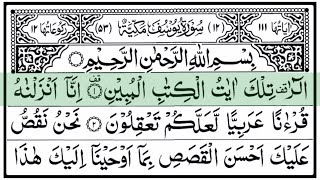 اٰیاتها ١١١ (١٢) سُوْرَةُ يُوْسُفَ مَكِّيَّةٌ (٥٣) رکوعاتها ١٢
بِسْمِ اللّٰهِ الرَّحْمٰنِ الرَّحِيْمِ
الٓرٰ ۫ تِلْكَ اٰيٰتُ الْكِتٰبِ الْمُبِيْنِ ۟ۙ ١ اِنَّاۤ اَنْزَلْنٰهُ
قُرْءٰنًا عَرَبِيًّا لَّعَلَّكُمْ تَعْقِلُوْنَ ٢ نَحْنُ نَقُصُّ
عَلَيْكَ اَحْسَنَ الْقَصَصِ بِمَاۤ اَوْحَيْنَاۤ اِلَيْكَ هٰذَا